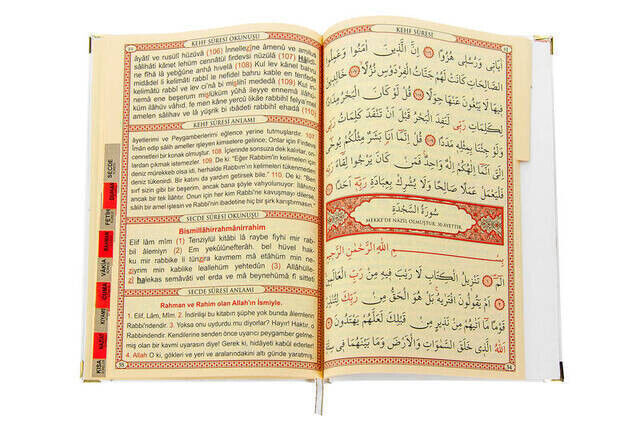 KEHF SÛRESİ OKUNUŞU
âyâtî ve rusulî hüzüvâ (106) İnnellezîne âmenû ve amilus
sâlihâti kânet lehüm cennâtül firdevsi nüzülâ (107) Hâlidî-
ne fîhâ lâ yebğûne anhâ hıvelâ (108) Kul lev kânel bahru
midâdel li kelimâti rabbî le nefidel bahru kable en tenfede
kelimâtü rabbî ve lev ci'nâ bi mislihî mededâ (109) Kul in-
nemâ ene beşerum mislüküm yûhâ ileyye ennemâ ilâhü-
küm ilâhüv vâhid, fe men kâne yercû likâe rabbihî felya'mel
amelen sâlihav ve lâ yüşrik bi ıbâdeti rabbihî ehadâ (110)
KEHF SÛRESİ ANLAMI
âyetlerimi ve Peygamberlerimi eğlence yerine tutmuşlardır. 107.
İman edip salih ameller işleyen kimselere gelince; Onlar için Firdevs
cennetleri bir konak olmuştur. 108. İçlerinde sonsuza dek kalırlar, on-
lardan çıkmak istemezler. 109. De ki: "Eğer Rabbim'in kelimeleri için
deniz mürekkep olsa idi, herhalde Rabbim'in kelimeleri tükenmeden
deniz tükenirdi. Bir katını da yardım getirsek bile." 110. De ki: "Ben
sırf sizin gibi bir beşerim, ancak bana şöyle vahyolunuyor: İlâhınız
ancak bir tek ilâhtır. Onun için her kim Rabbi'ne kavuşmayı dilerse
Rabbi'nin ibadetine hiç bir şirk karıştırmasın."
SECDE SÛRESİ OKUNUŞU
Bismillâhirrahmânirrahîm
Elif lâm mîm (1) Tenzîlül kitâbi lâ raybe fîhi mir rab-
bil âlemîyn (2) Em yekûlûnefterâh, bel hüvel hak-
ku mir rabbike li tünzira kavmem mâ etâhüm min ne-
zîyrim min kablike leallehüm yehtedûn (3) Allâhülle-
zî halekas semâvâti vel erda ve mâ beynehümâ fî sitteti
SECDE SÛRESİ ANLAMI
Rahman ve Rahim olan Allah'ın İsmiyle.
1. Elif, Lâm, Mîm. 2. İndirilişi bu kitabın şüphe yok bunda âlemlerin
Rabbi'ndendir. 3. Yoksa onu uydurdu mu diyorlar? Hayır! Haktır, o
Rabbindendir. Kendilerine senden önce uyarıcı peygamber gelme-
miş olan bir kavmi uyarasın diye! Gerek ki, hidâyeti kabûl ederler!
4. Allah O ki, gökleri ve yeri ve aralarındakini altı günde yaratmış,
SECDE
DUHAN
FETİH
RAHMAN
VÂKIA
CUMA
KIYAME
KISA
KEHF SÛRESİ
اٰيَاتٖي وَرُسُلٖي هُزُوًا ﴿١٠٦﴾ اِنَّ الَّذٖينَ اٰمَنُوا وَعَمِلُوا
الصَّالِحَاتِ كَانَتْ لَهُمْ جَنَّاتُ الْفِرْدَوْسِ نُزُلًا ﴿١٠٧﴾ خَالِدٖينَ
فٖيهَا لَا يَبْغُونَ عَنْهَا حِوَلًا ﴿١٠٨﴾ قُلْ لَوْ كَانَ الْبَحْرُ مِدَادًا
لِكَلِمَاتِ رَبّٖي لَنَفِدَ الْبَحْرُ قَبْلَ اَنْ تَنْفَدَ كَلِمَاتُ رَبّٖي
وَلَوْ جِئْنَا بِمِثْلِهٖ مَدَدًا ﴿١٠٩﴾ قُلْ اِنَّمَا اَنَا بَشَرٌ مِثْلُكُمْ يُوحٰى
اِلَيَّ اَنَّمَا اِلٰهُكُمْ اِلٰهٌ وَاحِدٌ فَمَنْ كَانَ يَرْجُوا لِقَاءَ رَبِّهٖ
فَلْيَعْمَلْ عَمَلًا صَالِحًا وَلَا يُشْرِكْ بِعِبَادَةِ رَبِّهٖ اَحَدًا ﴿١١٠﴾
سُورَةُ السَّجْدَةِ
MEKKE'DE NAZİL OLMUŞTUR. 30 AYETTİR.
بِسْمِ اللّٰهِ الرَّحْمٰنِ الرَّحٖيمِ
الٓمٓ ﴿١﴾ تَنْزٖيلُ الْكِتَابِ لَا رَيْبَ فٖيهِ مِنْ رَبِّ الْعَالَمٖينَ ﴿٢﴾
اَمْ يَقُولُونَ افْتَرٰيهُ بَلْ هُوَ الْحَقُّ مِنْ رَبِّكَ لِتُنْذِرَ
قَوْمًا مَا اَتٰيهُمْ مِنْ نَذٖيرٍ مِنْ قَبْلِكَ لَعَلَّهُمْ يَهْتَدُونَ ﴿٣﴾
اَللّٰهُ الَّذٖي خَلَقَ السَّمٰوَاتِ وَالْاَرْضَ وَمَا بَيْنَهُمَا فٖي